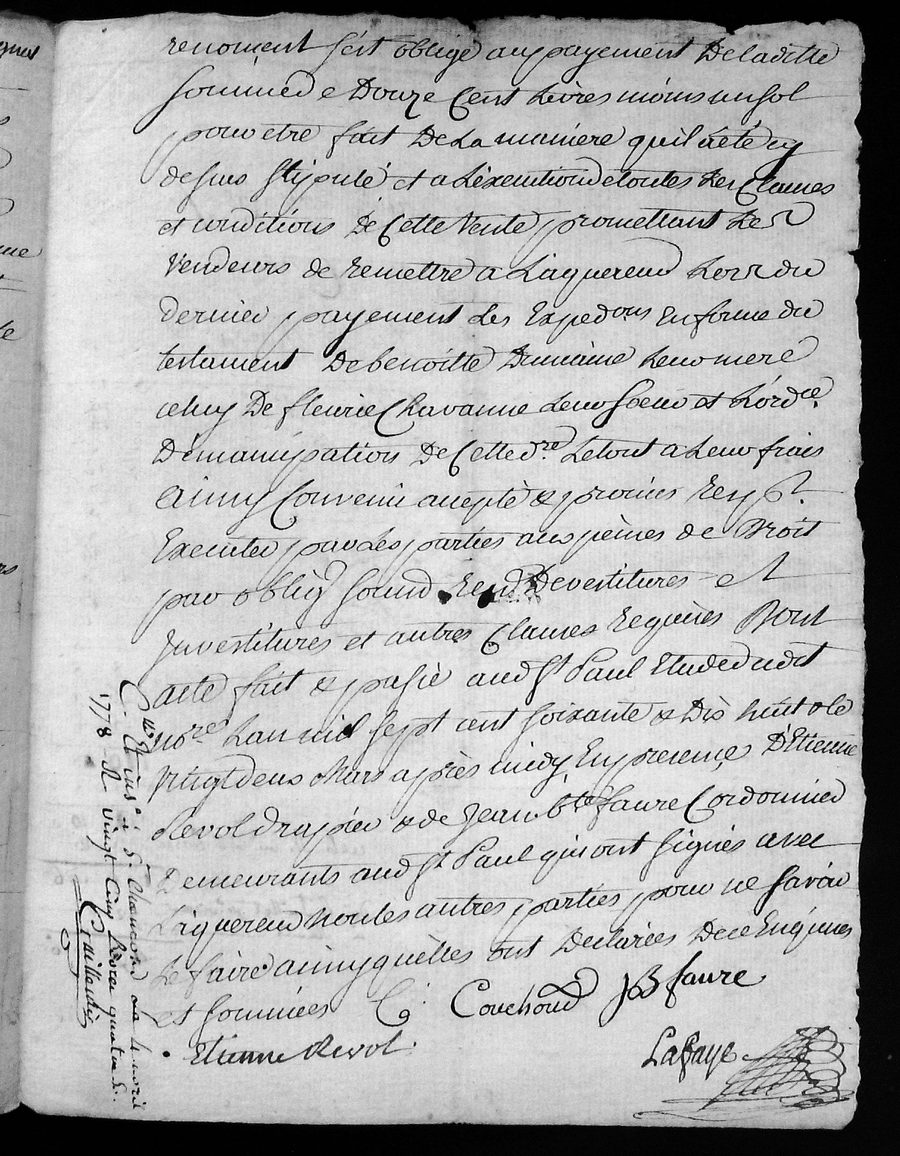 renoment s'est obligé au payement De la ditte
somme de Douze Cent Livres moins un sol
pour etre fait De La maniere quil a été cy
dessus stipulé et a Lexecution de toutes Les Clauses
et conditions De Cette Vente promettant Les
Vendeurs de Remettre a Laquereur Lors du
dernier payement des Expedons En forme du
testament De benoitte Dumaine Leur mere
celuy De fleurie Chavanne Leur soeur et L'ordce.
Démancipation De Cette dre. Le tout a Leur frais
Ainsy Convenu accepté & promis
Executer par des parties aux peines de Droit
par oblign soumn Renon Devestitures et
Investitures et autres Clauses Requises Dont
acte fait & passé aud St Paul Etude dudit
nore Lan mil sept cent soixante & Dix huit & le
Vingt deux Mars après midy En presence D'Etienne
Revol drapier & de Jean Bte faure Cordonnier
Demeurants aud St Paul qui ont signés avec
L'aquereur non les autres parties pour ne savoir
Le faire ainsy quelles ont Declarées De ce Enquises
et sommées C. Couchoud JB faure
Etienne Revol.
Lafaye
Cllé Et ins a St Chamond le 4 avril
1778 R vingt Cinq Livres quatre s.